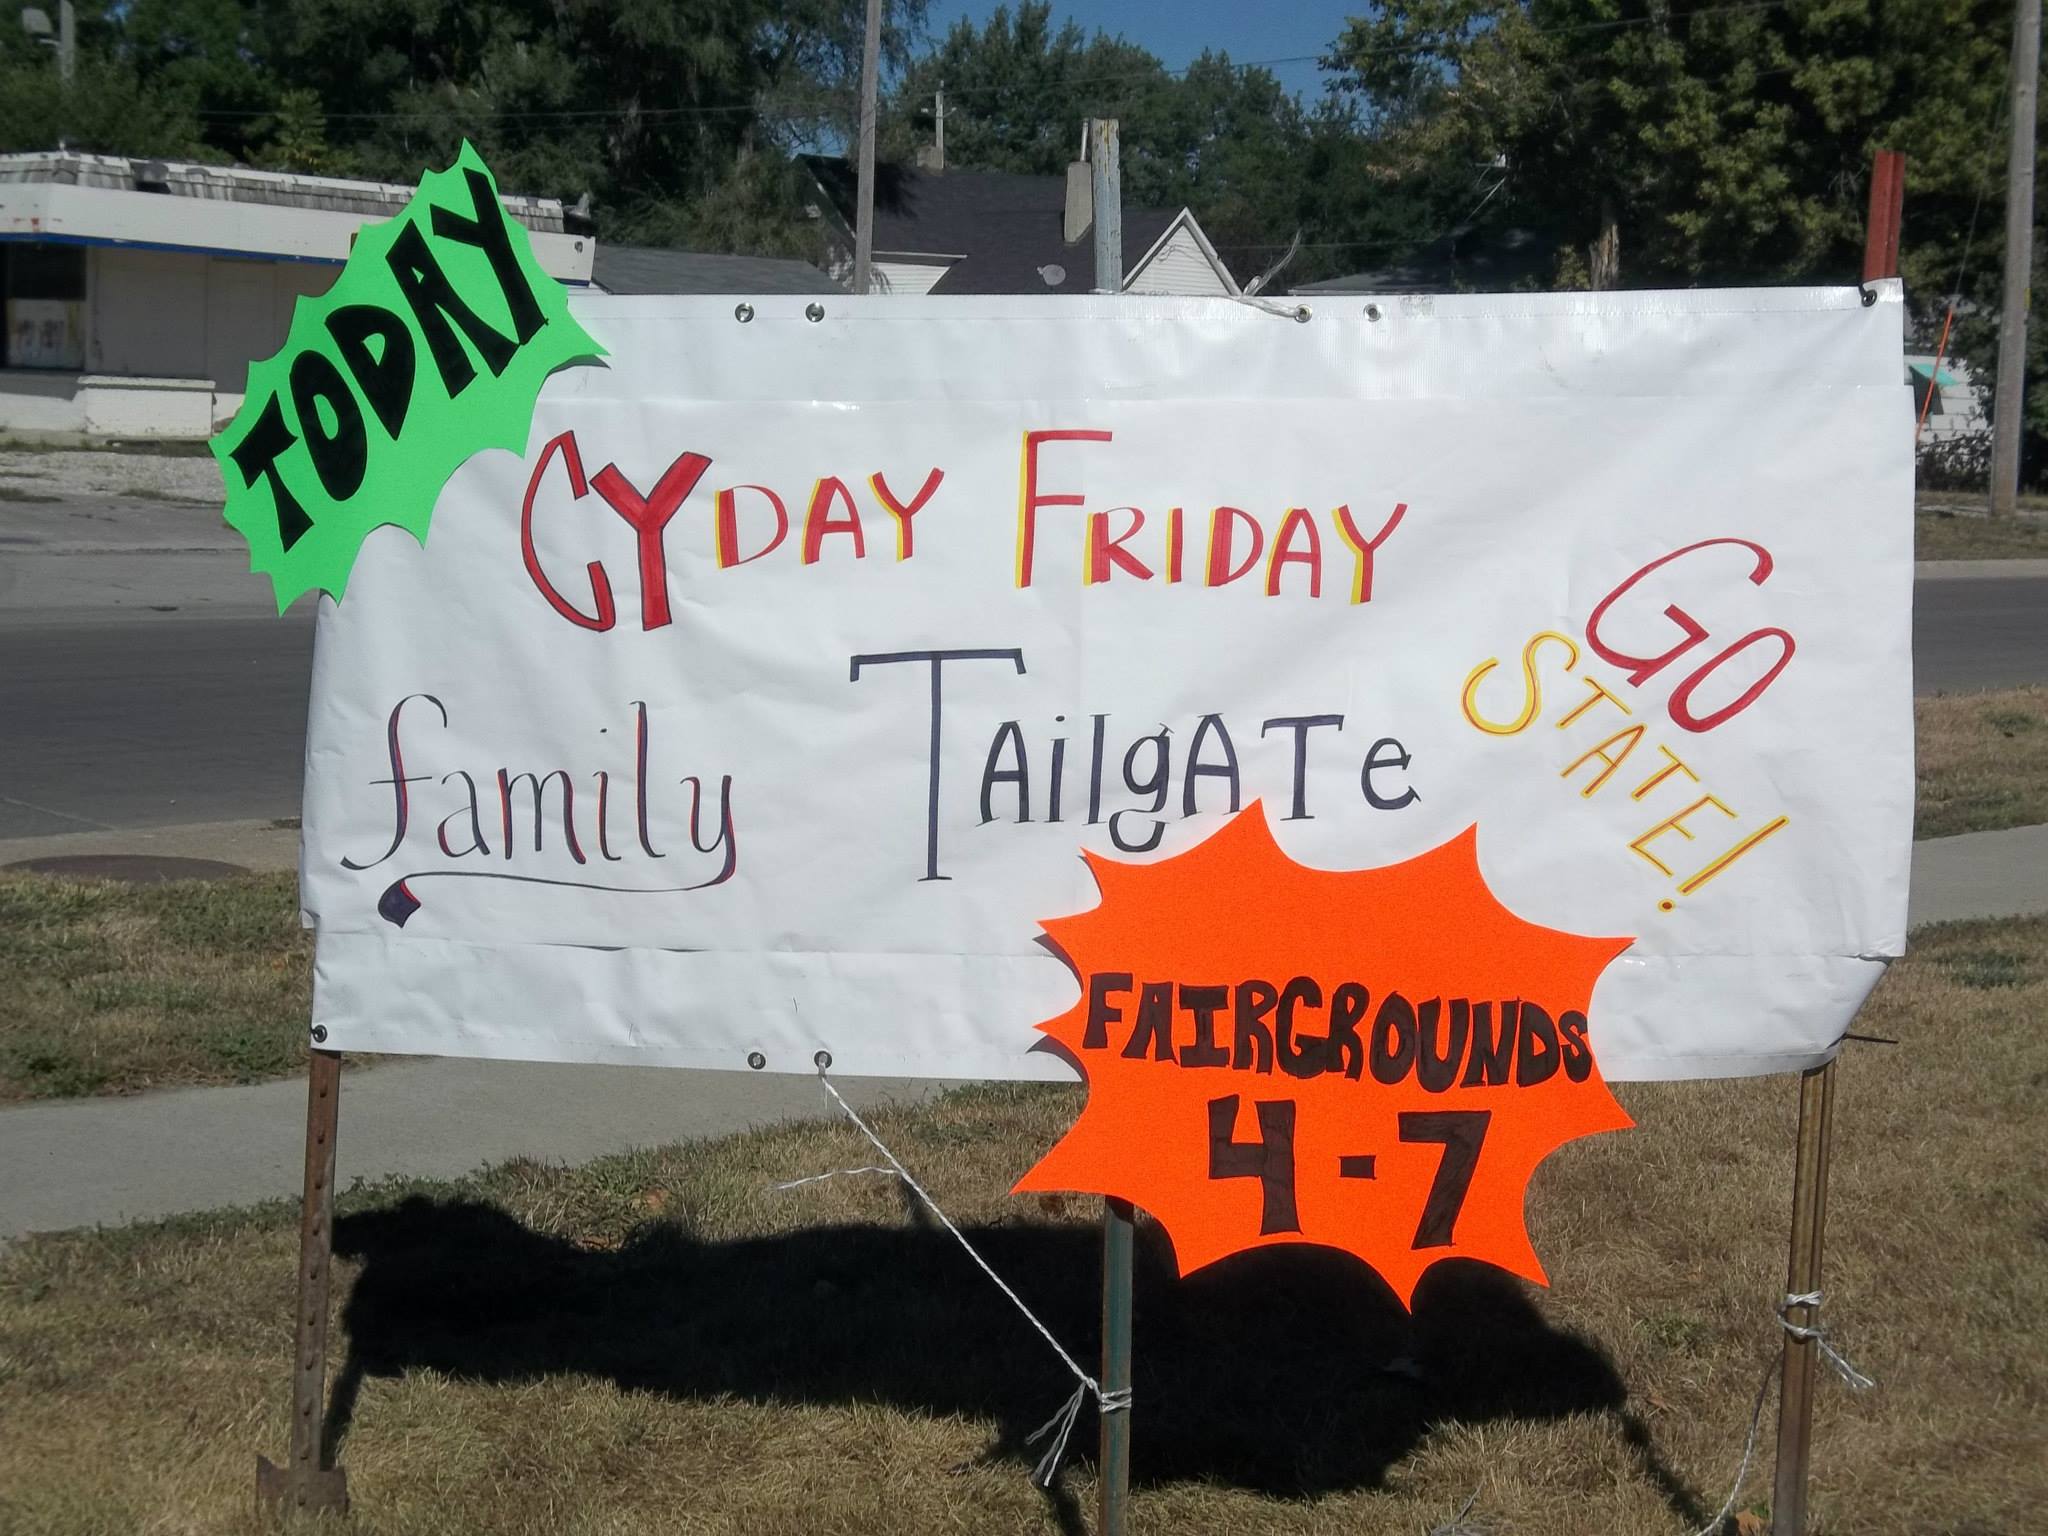 TODAY
CYDAY FRIDAY
family TAilgATe
GO
STATE!
FAIRGROUNDS
4-7